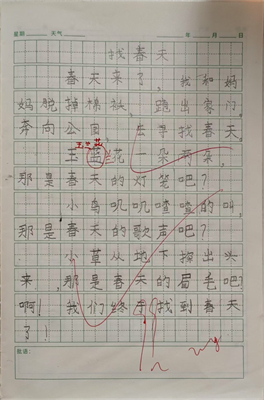 星期 天气 年 月 日
找春天
春天来了，我和妈
妈脱掉棉袄，跑出家门，
奔向公园，去寻找春天。
玉兰花
玉兰花一朵两朵，
那是春天的灯笼吧？
小鸟叽叽喳喳的叫，
那是春天的歌声吧？
小草从地下探出头
来，那是春天的眉毛吧？
啊！我们终于找到春天
了！
批语：